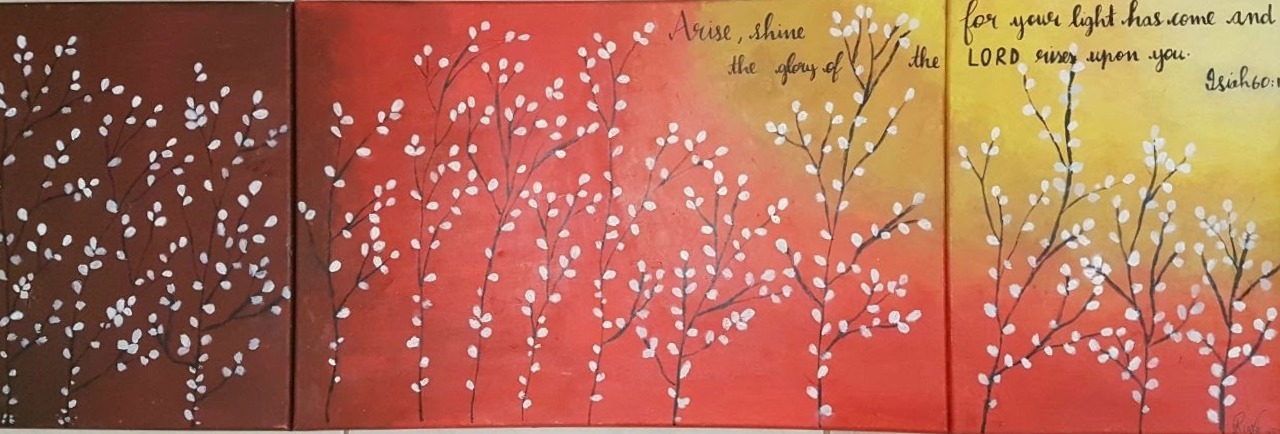 Arise, shine for your light has come and
the glory of the LORD rises upon you.
Isiah 60:1